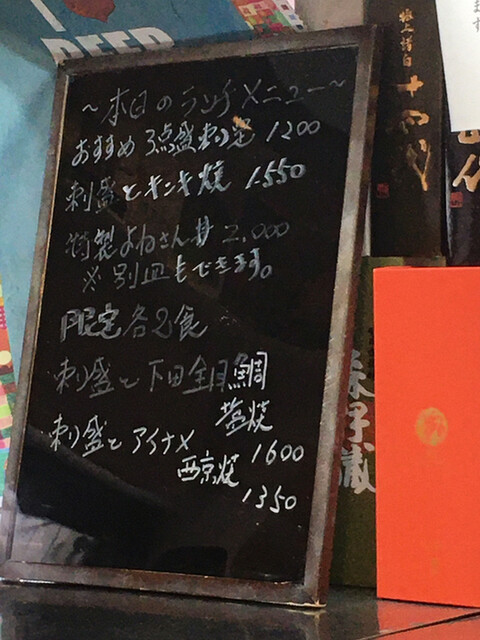 BEER
〜本日のランチメニュー〜
おすすめ 3点盛刺定 1200
刺盛とキンキ焼 1.550
特製よねさん丼 2.000
※別皿もできます。
限定各2食
刺盛と下田金目鯛
塩焼
1600
刺盛とアイナメ
西京焼
1350
十四代
森伊蔵